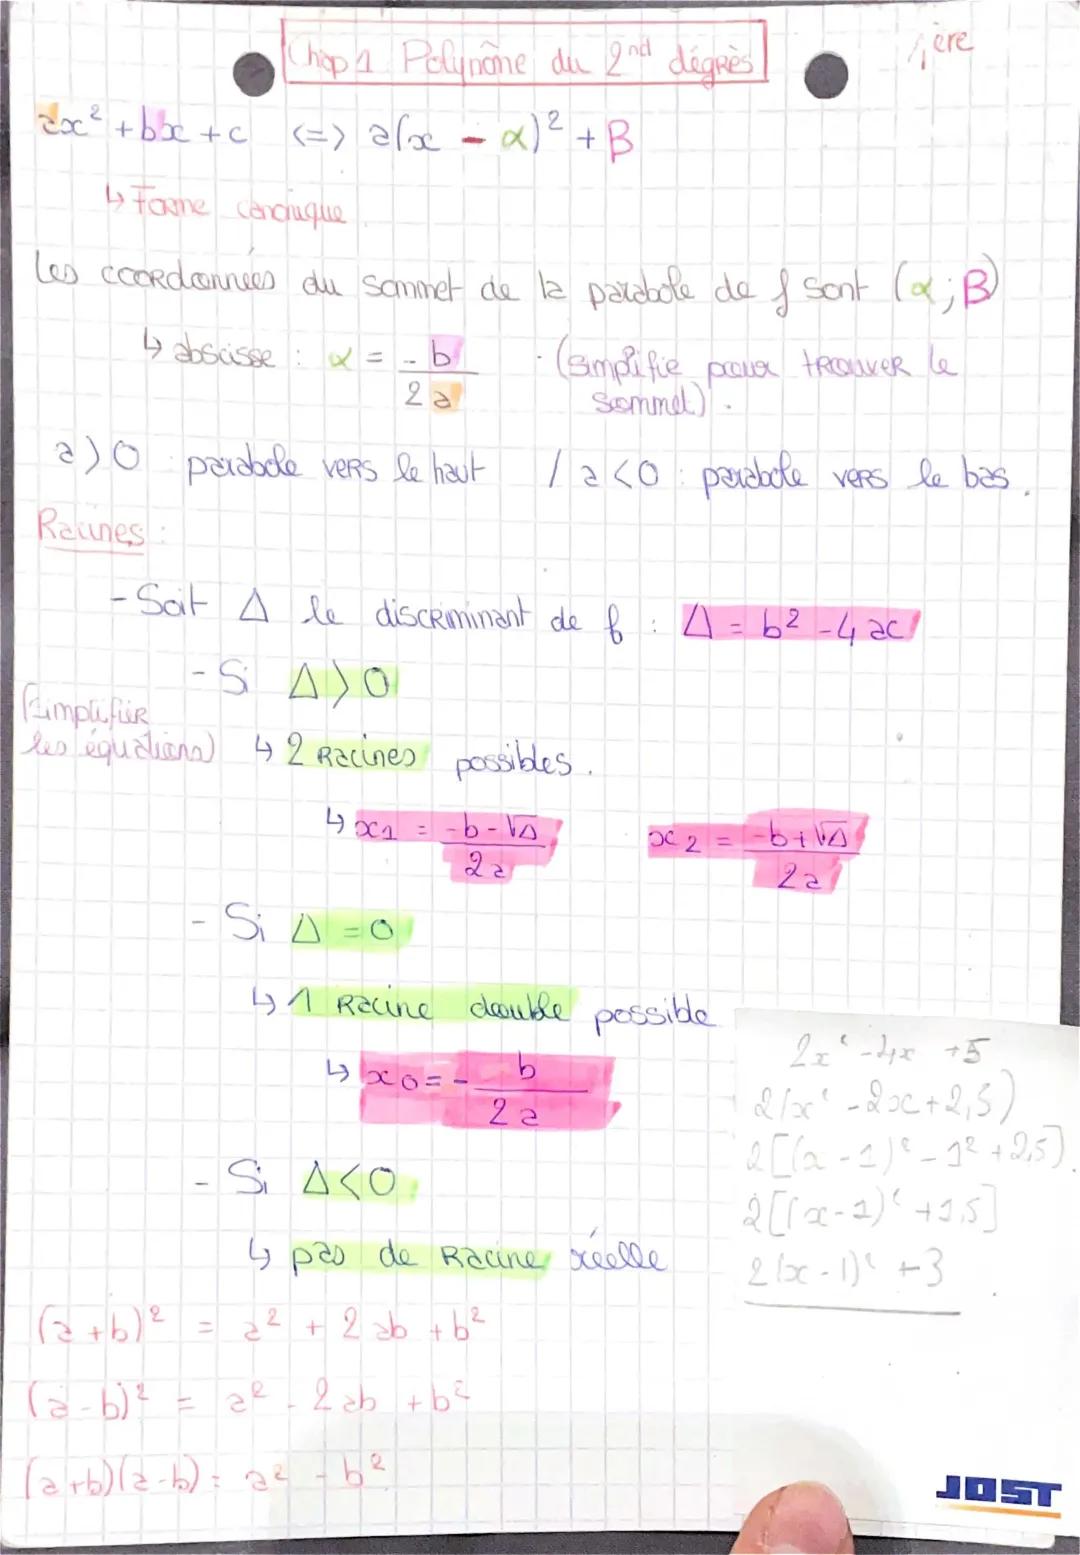 Chap 1 Polynôme du 2nd dégrès
1ère
ax² + bx + c <=> a(x - α)² + B
↳ Forme canonique
Les coordonnées du sommet de la parabole de f sont (α; B)
↳ abscisse : α = - b / 2a (simplifie pour trouver le sommet).
a > 0 : parabole vers le haut / a < 0 : parabole vers le bas.
Racines :
- Soit Δ le discriminant de f : Δ = b² - 4ac
- Si Δ > 0
(simplifier
les équations) ↳ 2 Racines possibles.
↳ x1 = -b-√Δ / 2a x2 = -b+√Δ / 2a
- Si Δ = 0
↳ 1 Racine double possible
↳ x0 = - b / 2a
- Si Δ < 0
↳ pas de Racine réelle
2x² - 4x + 5
2(x² - 2x + 2,5)
2[(x - 1)² - 1² + 2,5)
2[(x - 1)² + 1,5]
2(x - 1)² + 3
(a + b)² = a² + 2ab + b²
(a - b)² = a² - 2ab + b²
(a + b)(a - b) = a² - b²
JOST